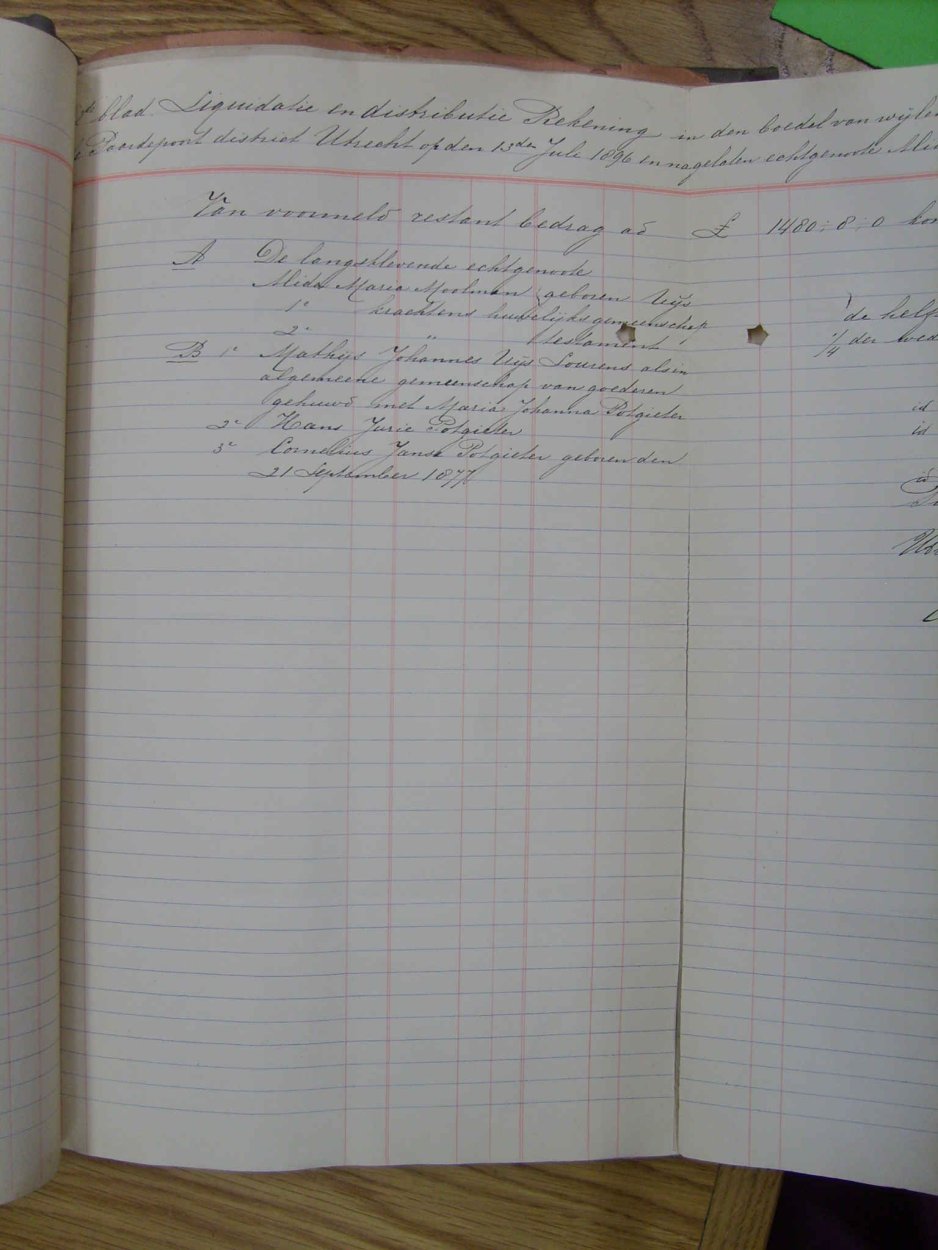 de blad. Liquidatie en distributie Rekening in den boedel van wijlen
Paardepoort district Utrecht op den 13den Julij 1896 en nagelaten echtgenoote
Van voormeld restant bedrag ad £ 1480:8:0
A De langstlevende echtgenoote
Alida Maria Moolman geboren Uijs
1e krachtens huwelijksgemeenschap de helf
2e " testament 1/4 der
B 1e Mathijs Johannes Uijs Lourens als in
algemeene gemeenschap van goederen
gehuwd met Maria Johanna Potgieter id
2e Hans Jurie Potgieter id
3e Cornelius Janse Potgieter geboren den
21 September 1877 id